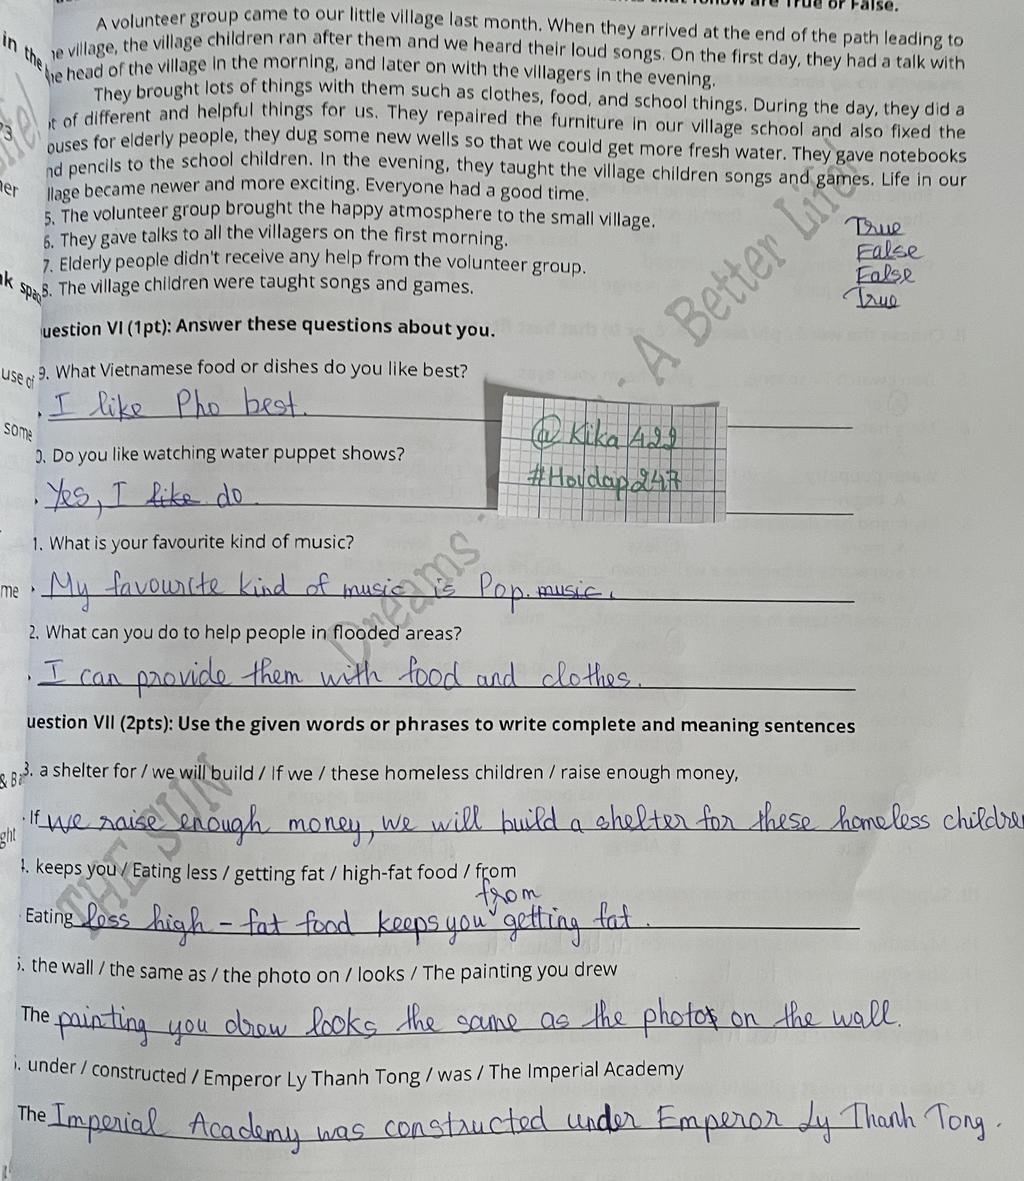 follow are True or False.
A volunteer group came to our little village last month. When they arrived at the end of the path leading to
in the
he village, the village children ran after them and we heard their loud songs. On the first day, they had a talk with
he head of the village in the morning, and later on with the villagers in the evening.
They brought lots of things with them such as clothes, food, and school things. During the day, they did a
ot of different and helpful things for us. They repaired the furniture in our village school and also fixed the
ouses for elderly people, they dug some new wells so that we could get more fresh water. They gave notebooks
nd pencils to the school children. In the evening, they taught the village children songs and games. Life in our
llage became newer and more exciting. Everyone had a good time.
5. The volunteer group brought the happy atmosphere to the small village. True
6. They gave talks to all the villagers on the first morning. False
7. Elderly people didn't receive any help from the volunteer group. False
8. The village children were taught songs and games. True
uestion VI (1pt): Answer these questions about you.
use of
9. What Vietnamese food or dishes do you like best?
I like Pho best.
some
0. Do you like watching water puppet shows?
Yes, I like do
@Kika422
#Hoidap247
1. What is your favourite kind of music?
me
My favourite kind of music is Pop. music.
2. What can you do to help people in flooded areas?
I can provide them with food and clothes.
uestion VII (2pts): Use the given words or phrases to write complete and meaning sentences
3. a shelter for / we will build / If we / these homeless children / raise enough money,
If we raise enough money, we will build a shelter for these homeless childre
ght
4. keeps you / Eating less / getting fat / high-fat food / from
from
Eating less high - fat food keeps you getting fat.
5. the wall / the same as / the photo on / looks / The painting you drew
The painting you drew looks the same as the photo on the wall.
. under / constructed / Emperor Ly Thanh Tong / was / The Imperial Academy
The Imperial Academy was constructed under Emperor Ly Thanh Tong.
THE SUN Dreams . A Better Life